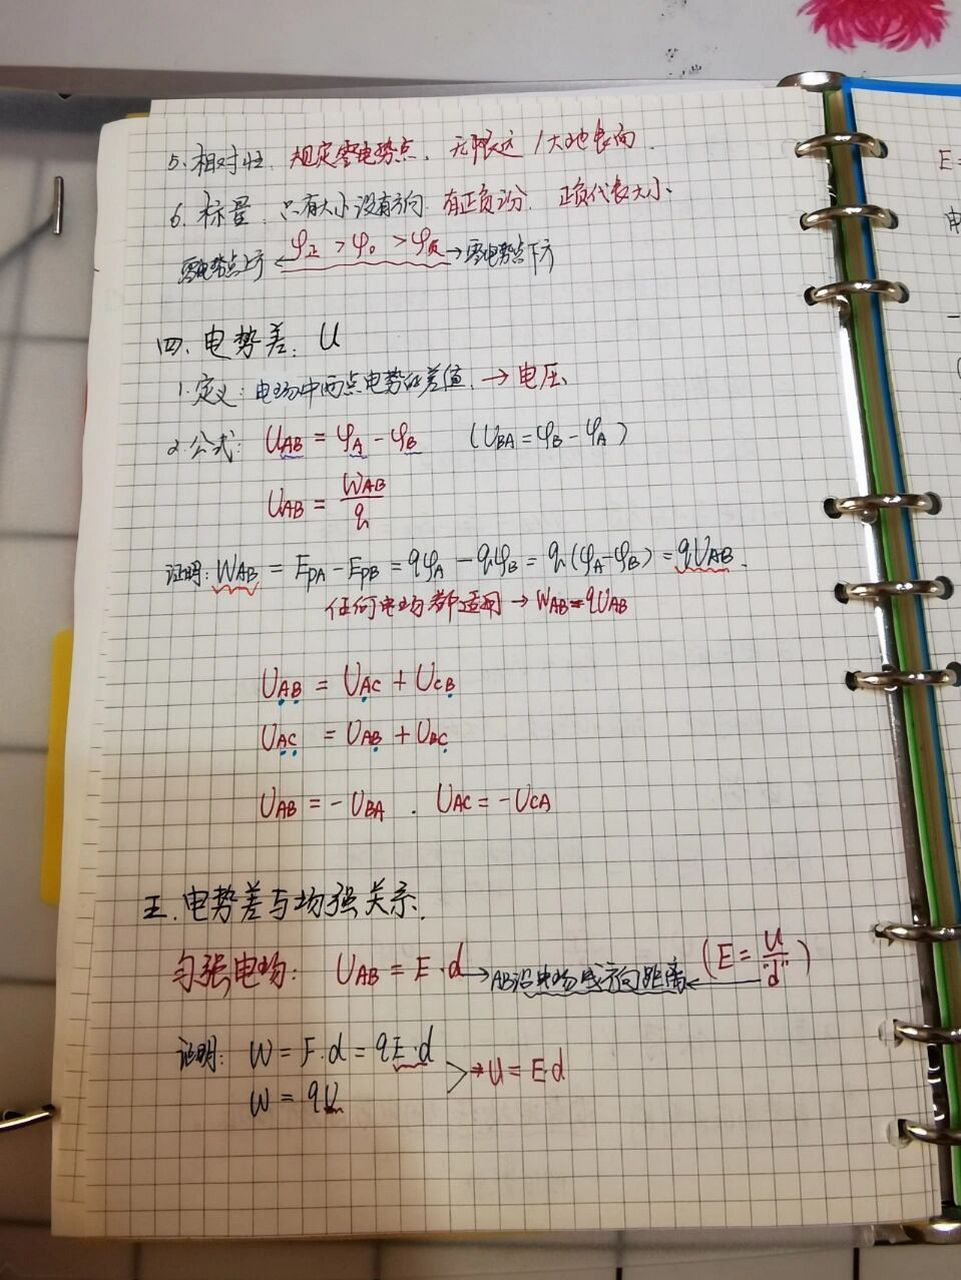 5. 相对性. 规定零电势点. 无限远 / 大地表向.
6. 标量. 只有大小没有方向. 有正负之分. 正负代表大小.
零电势点上方 ← φ正 > φ0 > φ负 → 零电势点下方
四、电势差: U
1. 定义: 电场中两点电势的差值. → 电压.
2. 公式: UAB = φA - φB (UBA = φB - φA)
UAB = WAB/q
证明: WAB = EPA - EPB = qφA - qφB = q(φA - φB) = qUAB.
任何电场都适用 → WAB = qUAB
UAB = UAC + UCB
UAC = UAB + UBC
UAB = - UBA . UAC = - UCA
五. 电势差与场强关系.
匀强电场: UAB = E·d → AB沿电场线方向距离 ← (E = U/"d")
证明: W = F·d = qE·d
W = qU
→ U = E·d
E =
电